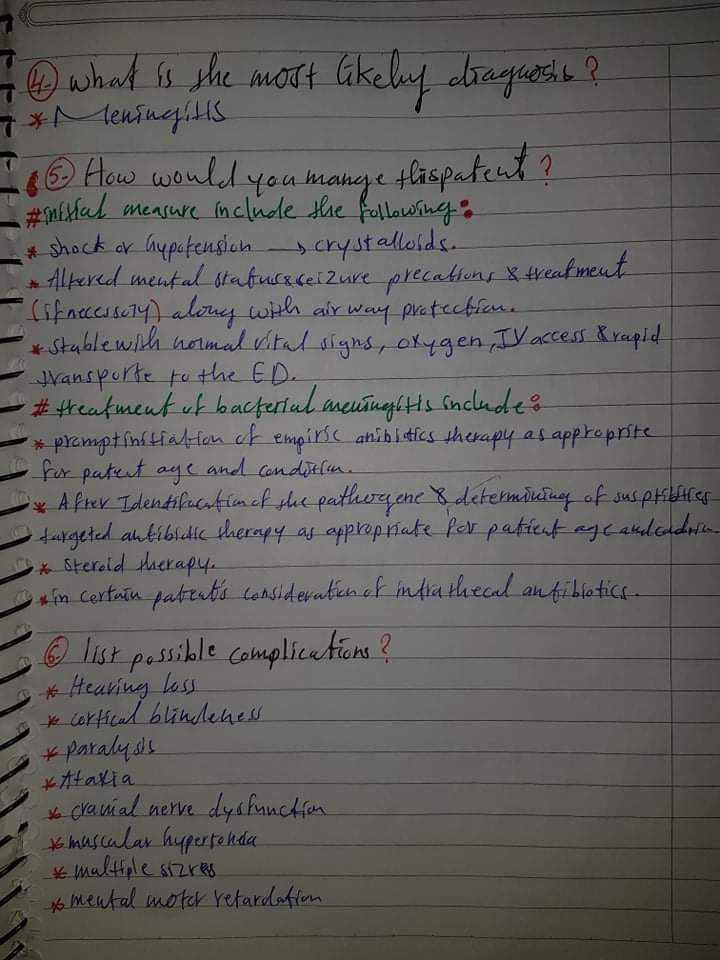 4- What is the most likely diagnosis?
* Meningitis
5- How would you mange this patent?
# initial measure include the following:
* shock or hypotension → crystalloids.
* Altered mental status & seizure precations & treatment
(if necessory) along with air way protection.
* stable with normal vital signs, oxygen, IV access & rapid
transporte to the ED.
# treatment of bacterial meningitis include:
* prompt initiation of empiric anibiotics therapy as approprite
for patent age and condition.
* After Identification of the pathogene & determining of susptibities
targeted antibiotic therapy as appropriate for patient age and
* steroid therapy.
* in certain patent's consideration of intrathecal antibiotics.
6- list possible complications?
* Hearing loss
* cortical blindeness
* paralysis
* Ataxia
* cranial nerve dysfunction
* muscular hypertonia
* multiple sizres
* mental motor retardation